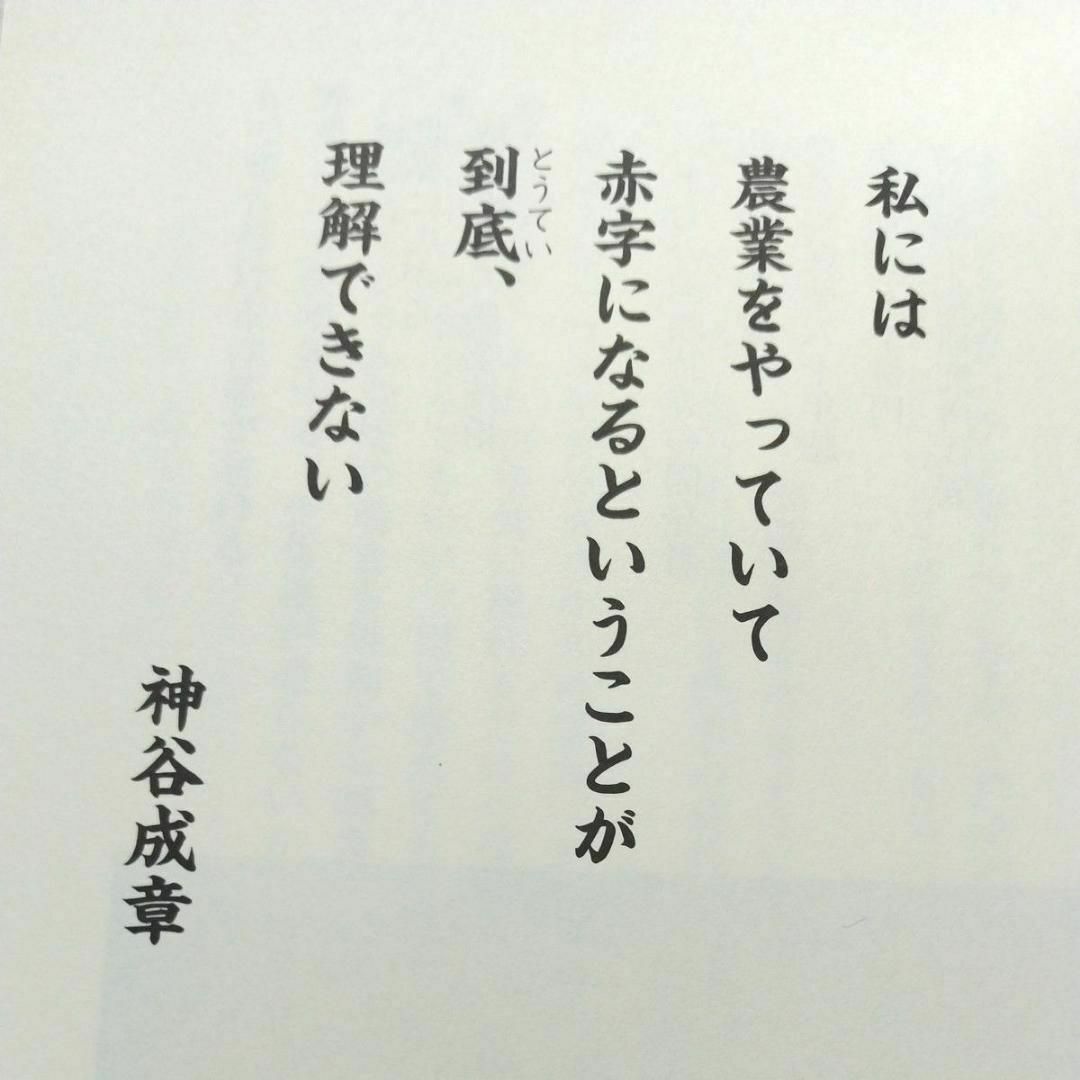 私には
農業をやっていて
赤字になるということが
到底、
とうてい
理解できない
神谷成章